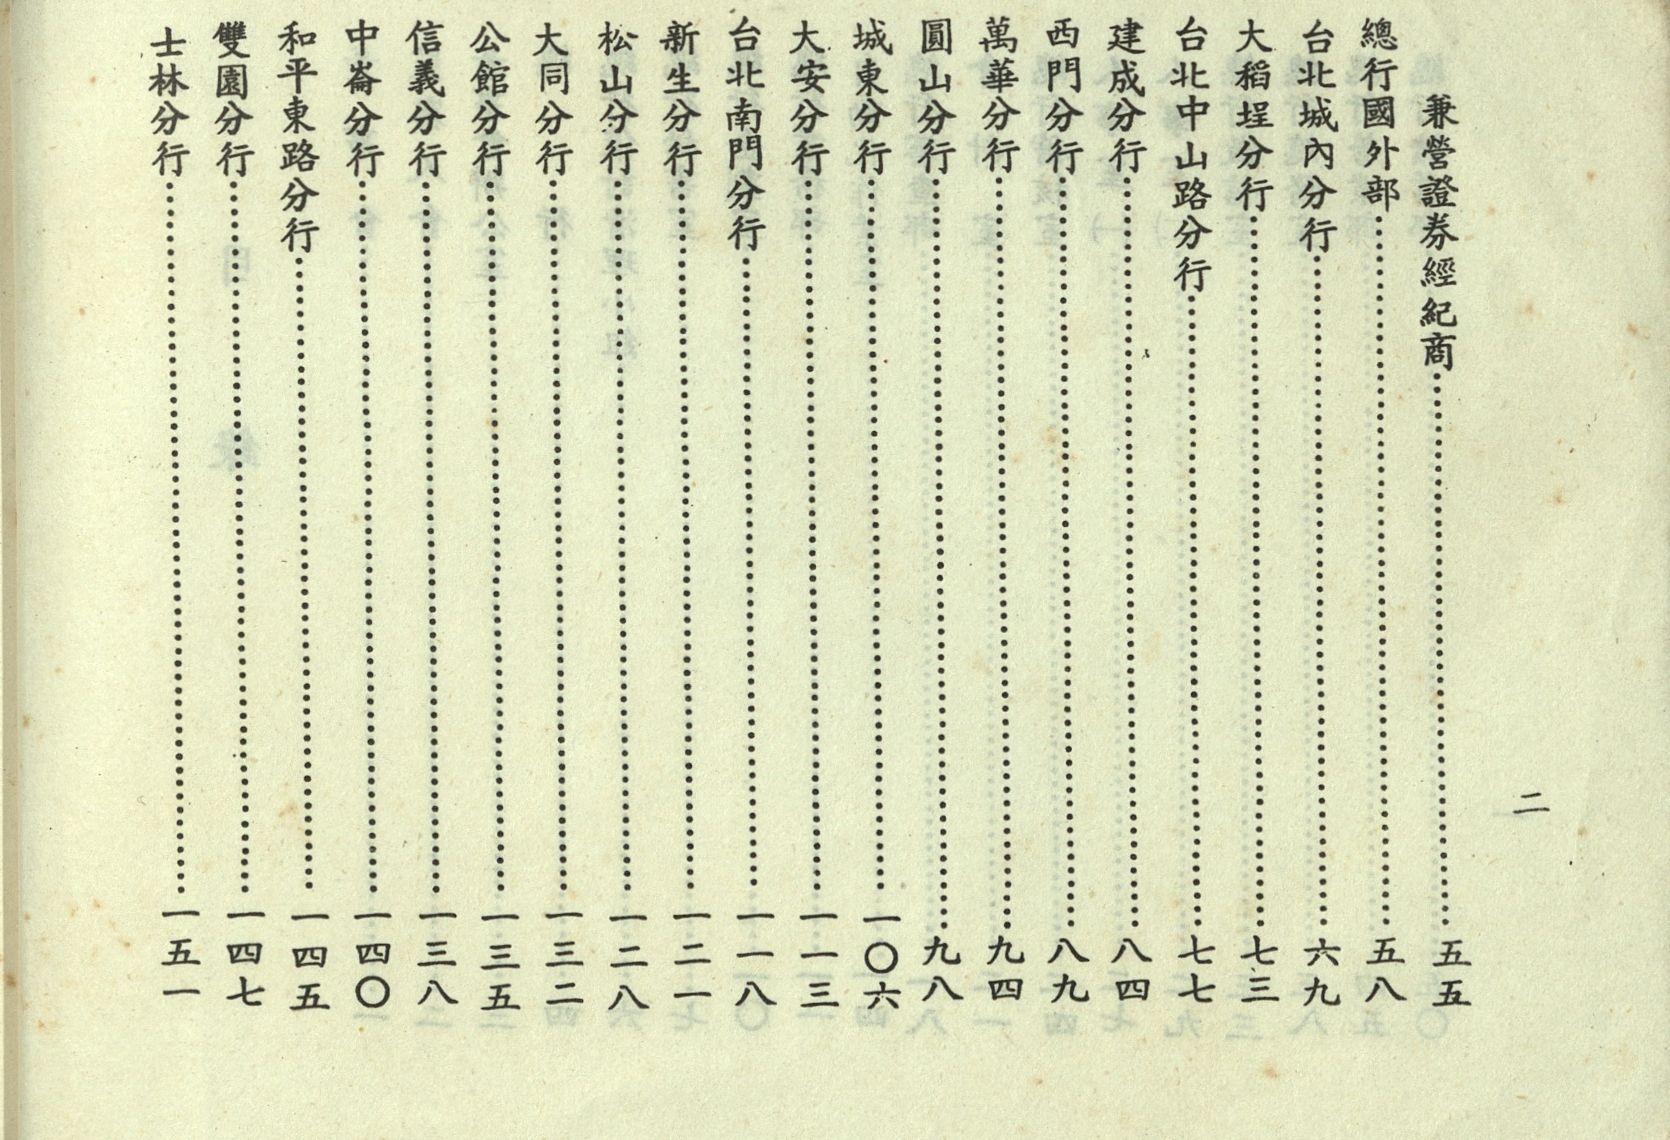 二
兼營證券經紀商……五五
總行國外部……五八
台北城內分行……六九
大稻埕分行……七三
台北中山路分行……七七
建成分行……八四
西門分行……八九
萬華分行……九四
圓山分行……九八
城東分行……一〇六
大安分行……一一三
台北南門分行……一一八
新生分行……一二一
松山分行……一二八
大同分行……一三二
公館分行……一三五
信義分行……一三八
中崙分行……一四〇
和平東路分行……一四五
雙園分行……一四七
士林分行……一五一